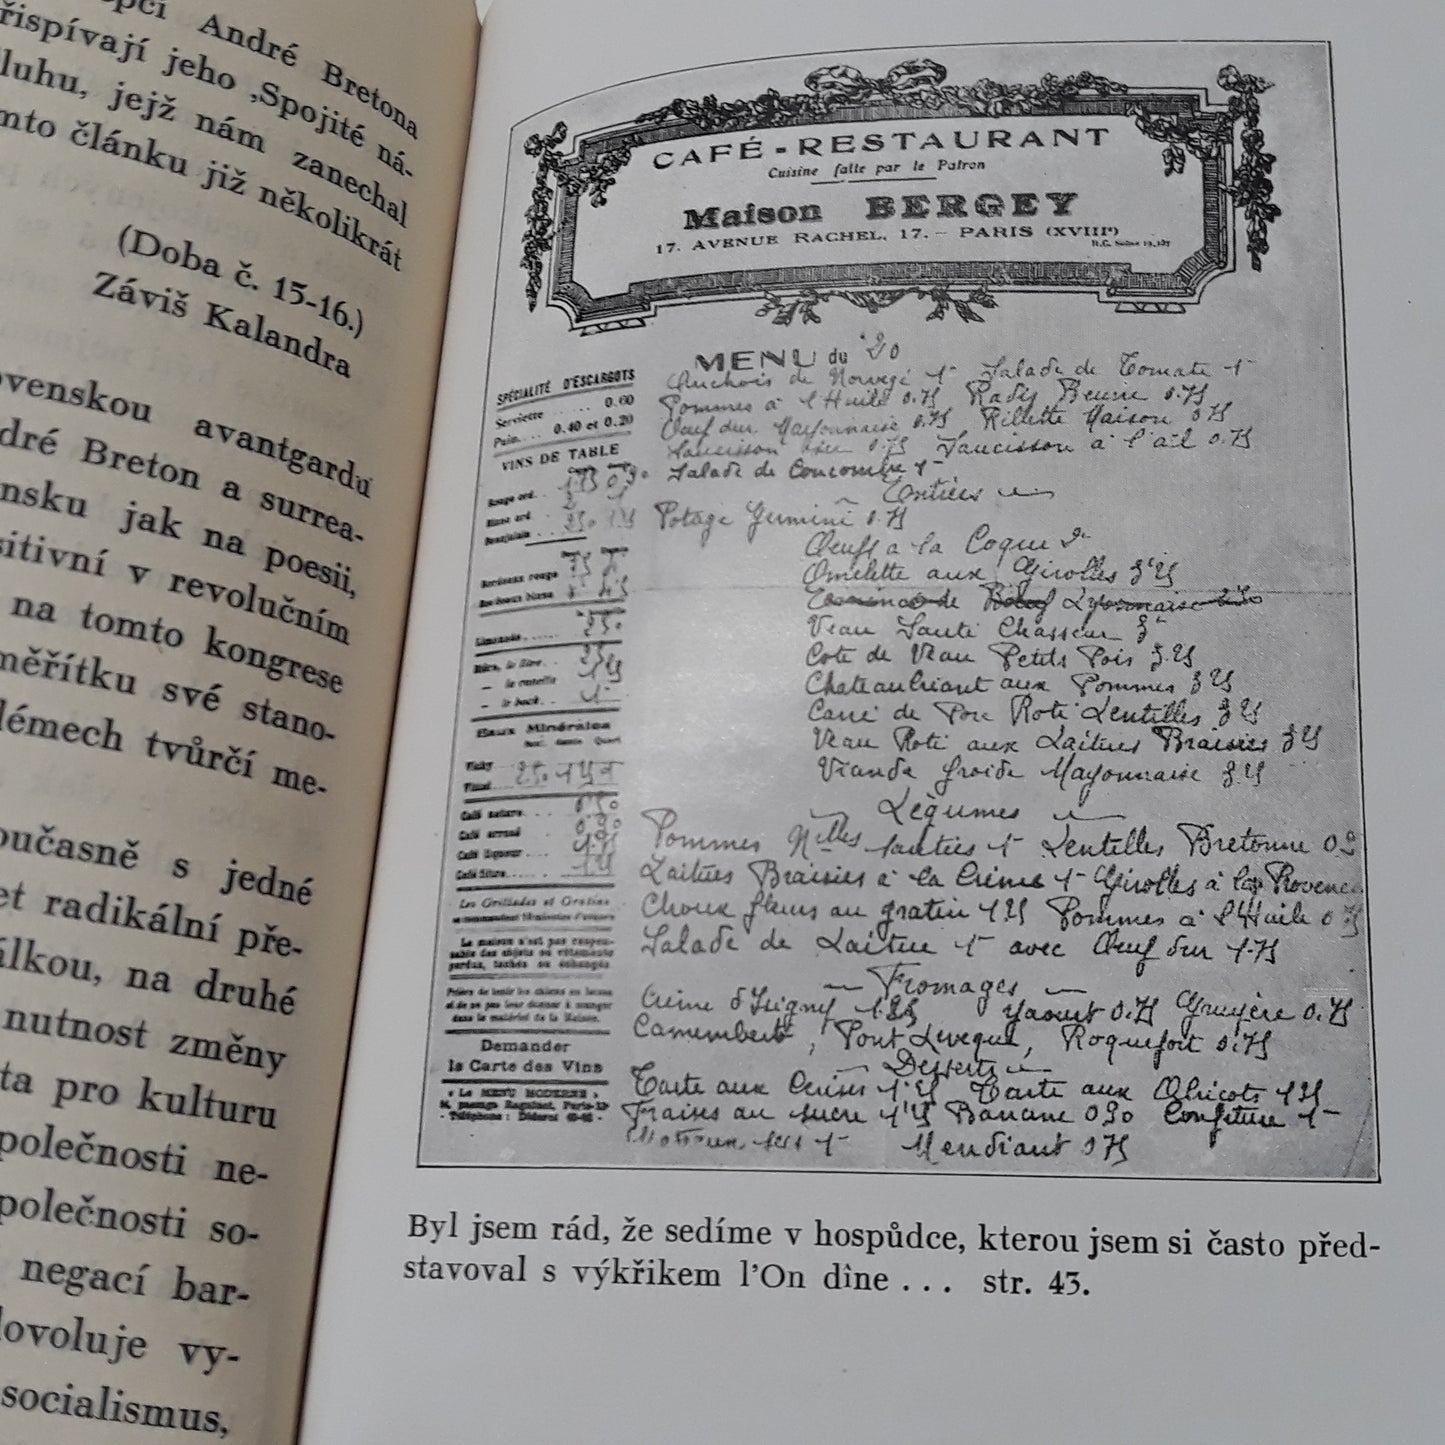 André Bretona
řispívají jeho ‚Spojité ná-
luhu, jejž nám zanechal
mto článku již několikrát
(Doba č. 15-16.)
Záviš Kalandra
ovenskou avantgardu
dré Breton a surrea-
nsku jak na poesii,
sitivní v revolučním
na tomto kongrese
měřítku své stano-
lémech tvůrčí me-
oučasně s jedné
et radikální pře-
álkou, na druhé
nutnost změny
ta pro kulturu
polečnosti ne-
polečnosti so-
negací bar-
dovoluje vy-
socialismus,
CAFÉ-RESTAURANT
Cuisine faite par le Patron
Maison BERGEY
17, AVENUE RACHEL, 17. - PARIS (XVIIIe)
MENU du 20
SPÉCIALITÉ D'ESCARGOTS
Serviette ...... 0.60
Pain.... 0.40 et 0.20
VINS DE TABLE
Rouge ord.
Blanc ord.
Beaujolais
Bordeaux rouge
Bordeaux blanc
Limonade
Bière, le litre
— la canette
— le bock
Eaux Minérales
Vichy
Vittel
Café nature
Café arrosé
Café liqueur
Café filtre
Les Grillades et Gratins
La maison n'est pas respon-
sable des objets ou vêtements
perdus, tachés ou échangés
Prière de tenir les chiens en laisse
et de ne pas leur donner à manger
dans le matériel de la Maison.
Demander
la Carte des Vins
« Le MENU MODERNE »
Anchois de Norvège 1- Salade de Tomate 1-
Pommes à l'Huile 0.75 Radis Beurre 0.75
Oeuf dur Mayonnaise 0.75 Rillette Maison 0.75
Saucisson sec 0.75 Saucisson à l'ail 0.75
Salade de Concombre 1-
Entrées
Potage Germini 0.75
Oeufs a la Coque 2-
Omelette aux Girolles 3'25
de Boeuf Lyonnaise
Veau Sauté Chasseur 3-
Cote de Veau Petits Pois 3.25
Chateaubriant aux Pommes 3.25
Carré de Porc Roti Lentilles 3.25
Veau Roti aux Laitues Braisées 3.25
Viande froide Mayonnaise 3.25
Légumes
Pommes Nlles sautées 1- Lentilles Bretonne
Laitues Braisées à la Crème 1- Girolles à la Provence
Choux fleurs au gratin 1.25 Pommes à l'Huile 0.75
Salade de Laitue 1- avec Oeuf dur 1.75
Fromages
Crème d'Isigny 1.25 Yaourt 0.75 Gruyère 0.75
Camembert, Pont Leveque, Roquefort 0.75
Desserts
Tarte aux Cerises 1'25 Tarte aux Abricots 1.25
Fraises au sucre 1'25 Banane 0.50 Confiture 1-
Mendiant 0.75
Byl jsem rád, že sedíme v hospůdce, kterou jsem si často před-
stavoval s výkřikem l'On dîne . . . str. 43.